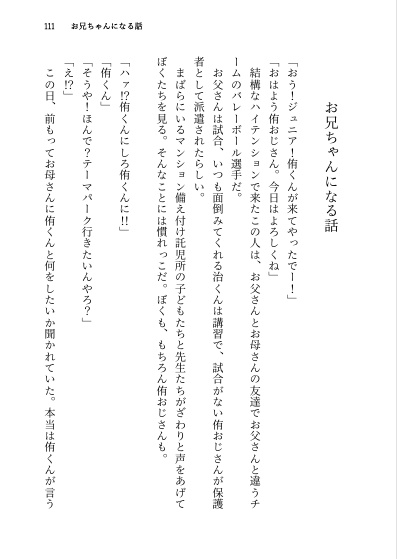 111　お兄ちゃんになる話
お兄ちゃんになる話
「おう！ジュニア！侑くんが来てやったでー！」
「おはよう侑おじさん。今日はよろしくね」
結構なハイテンションで来たこの人は、お父さんとお母さんの友達でお父さんと違うチ
ームのバレーボール選手だ。
お父さんは試合、いつも面倒みてくれる治くんは講習で、試合がない侑おじさんが保護
者として派遣されたらしい。
まばらにいるマンション備え付け託児所の子どもたちと先生たちがざわりと声をあげて
ぼくたちを見る。そんなことには慣れっこだ。ぼくも、もちろん侑おじさんも。
「ハァ!?侑くんにしろ侑くんに!!」
「侑くん」
「そうや！ほんで？テーマパーク行きたいんやろ？」
「え!?」
この日、前もってお母さんに侑くんと何をしたいか聞かれていた。本当は侑くんが言う